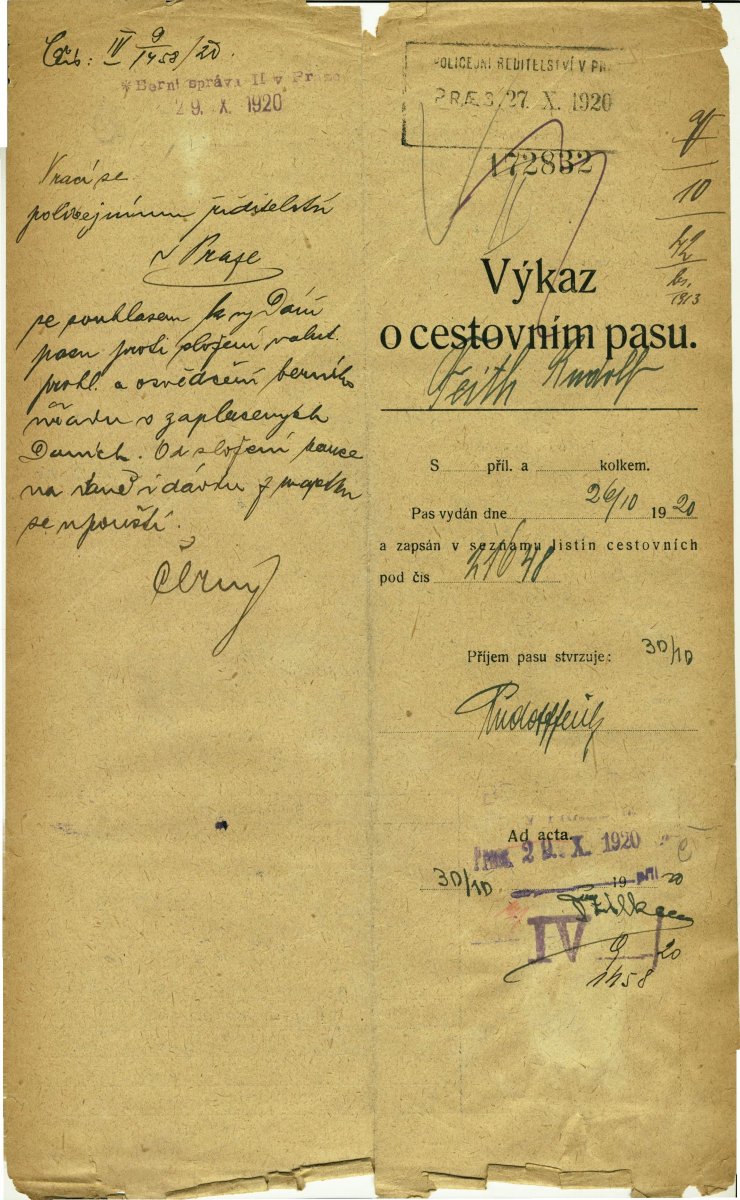 Čís: IV 9/1458/20.
Berní správa II v Praze
29. X. 1920
Vrací se
policejnímu ředitelství
v Praze
se souhlasem ku vydání
pasu proti složení valut.
prohl. a osvědčení berního
úřadu o zaplacených
daních. Od složení kauce
na daně i dávku z majetku
se upouští.
Černý
POLICEJNÍ ŘEDITELSTVÍ V PR
PRÆS. 27. X. 1920
172832
II
10
42
1913
Výkaz
o cestovním pasu.
Feith Rudolf
S příl. a kolkem.
Pas vydán dne 26/10 1920
a zapsán v seznamu listin cestovních
pod čís 21648
Příjem pasu stvrzuje: 30/10
Rudolf Feith
Ad acta.
29. X. 1920
30/10. 19 20
IV 9 20
1458